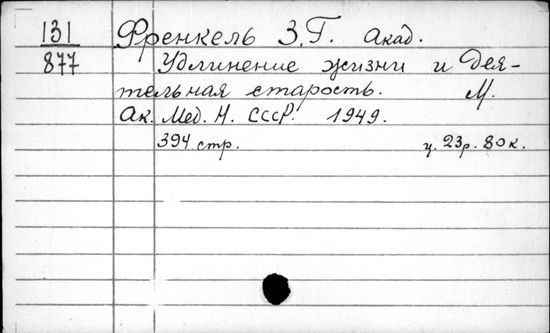 131 Френкель З.Г. акад.
877 Удлинение жизни и дея-
тельная старость. М.
Ак. Мед. Н. СССР. 1949.
394 стр. ц. 23р. 80к.